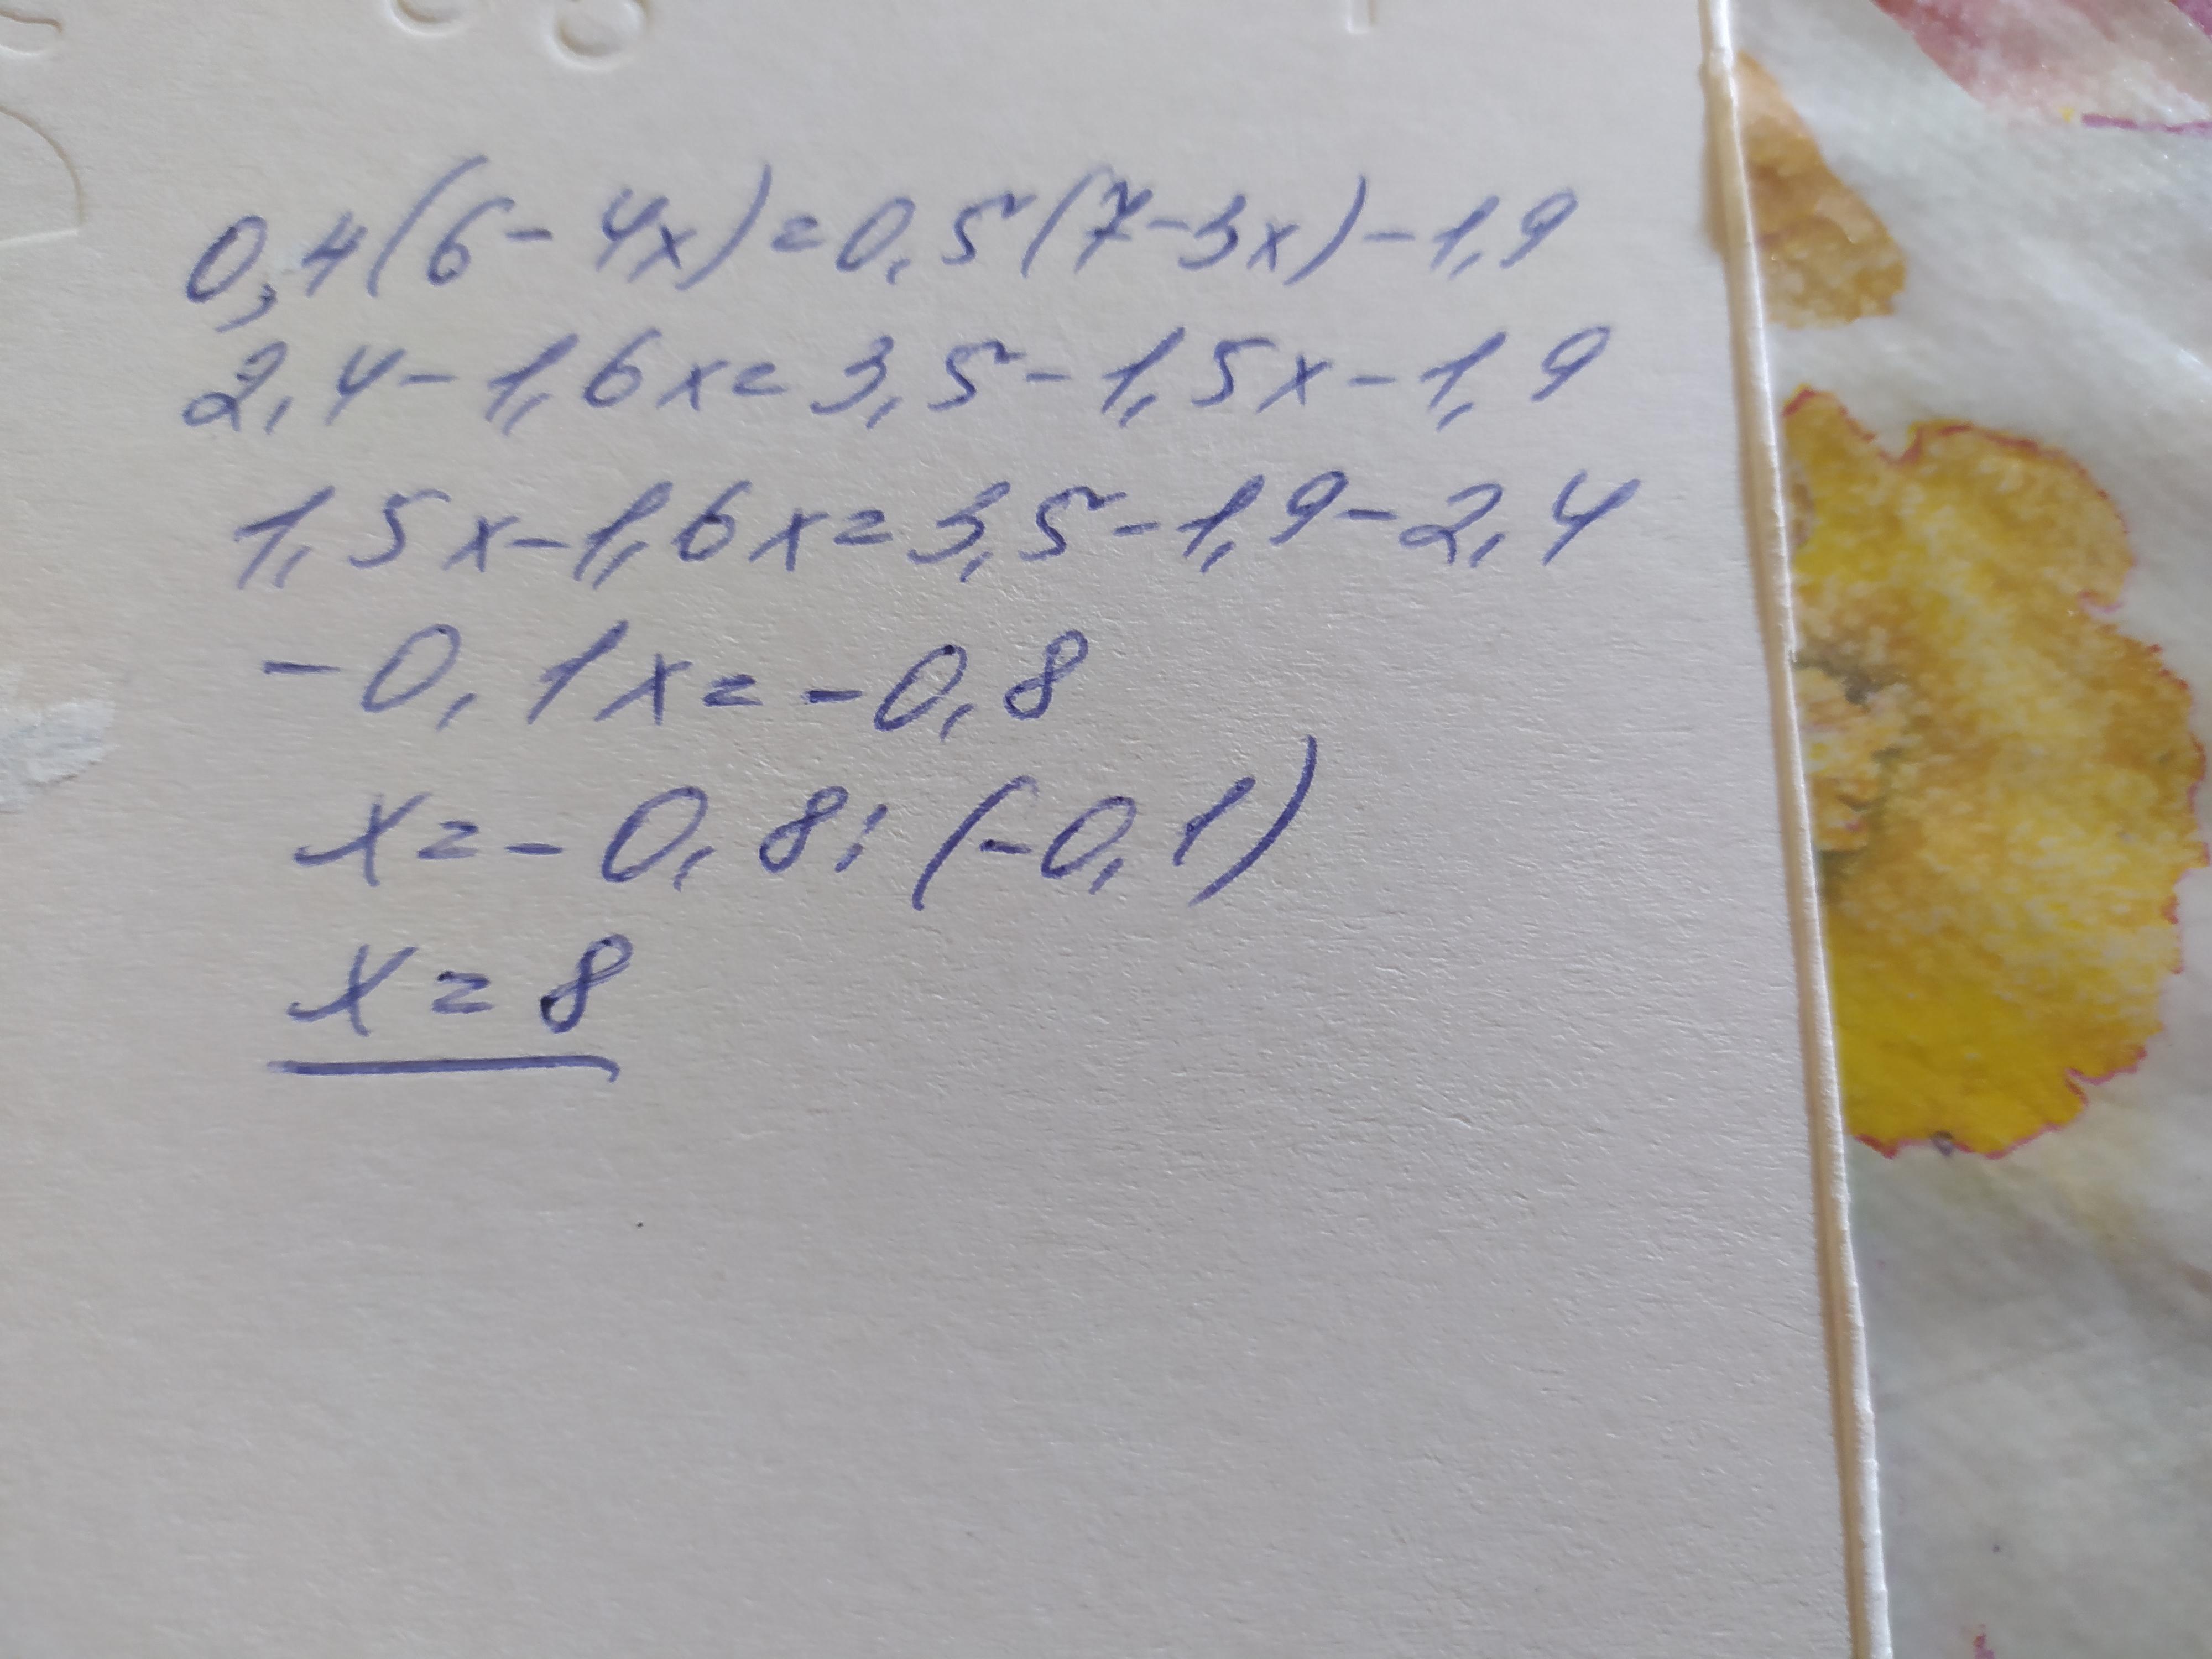 0,4(6-4x)=0,5(7-3x)-1,9
2,4-1,6x=3,5-1,5x-1,9
1,5x-1,6x=3,5-1,9-2,4
-0,1x=-0,8
x=-0,8:(-0,1)
x=8